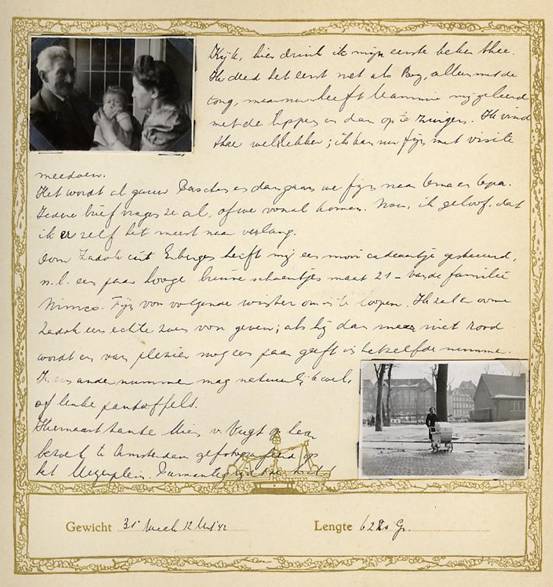 Kijk, hier drink ik mijn eerste beker thee.
Ik deed het eerst net als Boy, alles met de
tong, maar nu heeft Mammie mij geleerd
met de lippen en dan op te zuigen. Ik vind
thee wel lekker; ik kan nu fijn met visite
meedoen.
Het wordt al gauw Paschen en dan gaan we fijn naar Oma en Opa.
Iedere brief vragen ze al, of we vooral komen. Nou, ik geloof, dat
ik er zelf het meest naar verlang.
Oom Zadok uit heeft mij een mooi cadeautje gestuurd,
n.l. een paar hooge bruine schoentjes maat 21 – v. de familie
Fijn van volgende winter om in te loopen. Ik zal er oome
Zadok een echte zoen voor geven; als hij dan maar niet rood
wordt en van plezier nog een paar geeft in hetzelfde nummer.
In een ander nummer mag natuurlijk ook,
of leuke pantoffels.
Hiernaast tante Mies v. Vugt op haar
bezoek te Amsterdam gefotografeerd op
het
Gewicht 31e week 12 Mrt '42
Lengte 6280 Gr.